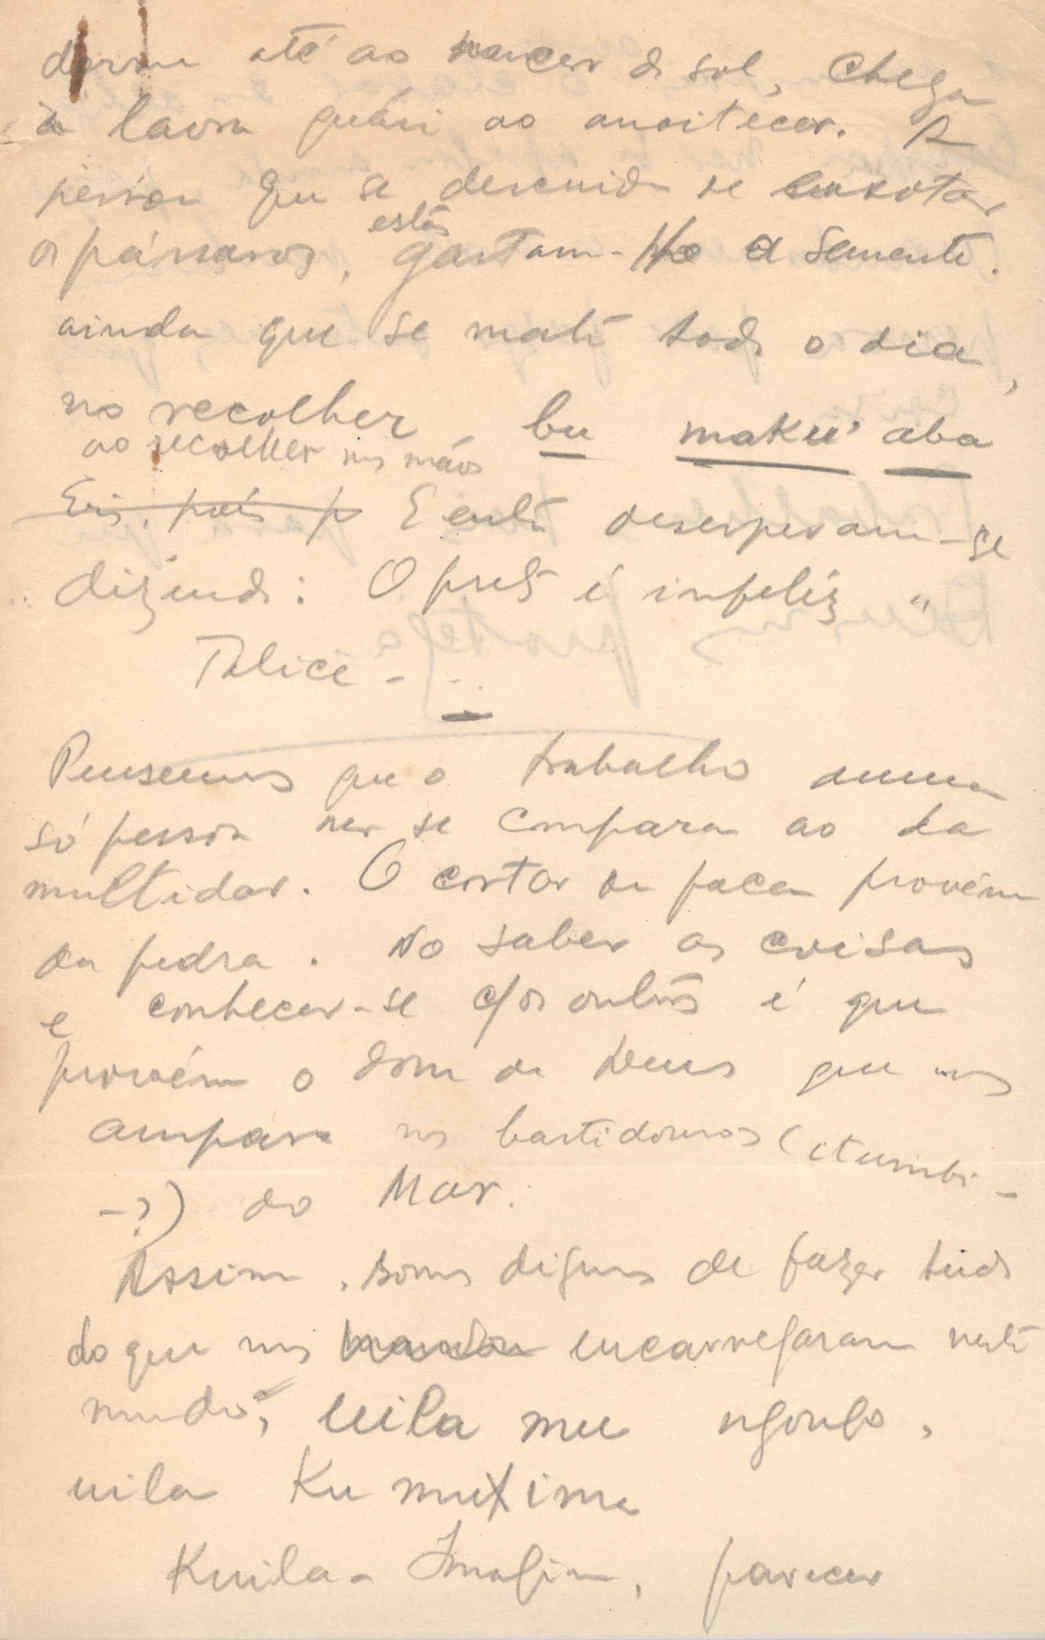 dorme até ao nascer do sol, chega
à lavra quási ao anoitecer. A
pessoa que se descuida de enxotar
os pássaros, estes gastam-lhe a semente.
ainda que se mate todo o dia,
no recolher bu maku' aba
ao recolher nas mãos
Eis, pois p E então desesperam-se
dizendo: O preto é infeliz "
Tolice -
Pensemos que o trabalho duma
só pessoa não se compara ao da
multidão. O cortar da faca provém
da pedra. No saber as coisas
e conhecer-se c/os outros é que
provém o dom de Deus que nos
ampara nos bastidouros (itumbi-
-?) do Mar.
Assim, somos dignos de fazer tudo
do que nos mandou encarregaram neste
mundo, uila mu ngongo,
uila Ku muxima
Kuila - Imagina, parecer